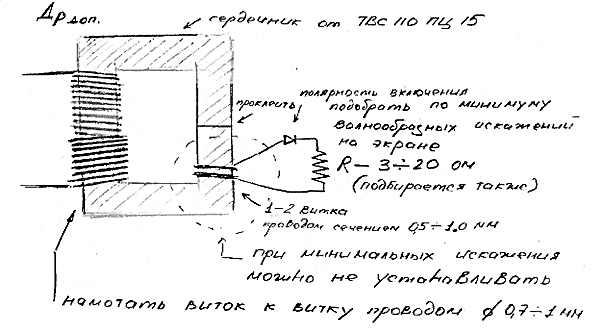 Др доп.
сердечник от ТВС 110 ПЦ 15
полярность включения
проклеить
подобрать по минимуму
волнообразных искажений
на экране
R – 3÷20 ом
(подбирается также)
1-2 витка
проводом сечением 0,5÷1,0 мм
при минимальных искажения
можно не устанавливать
намотать виток к витку проводом ϕ 0,7÷1 мм